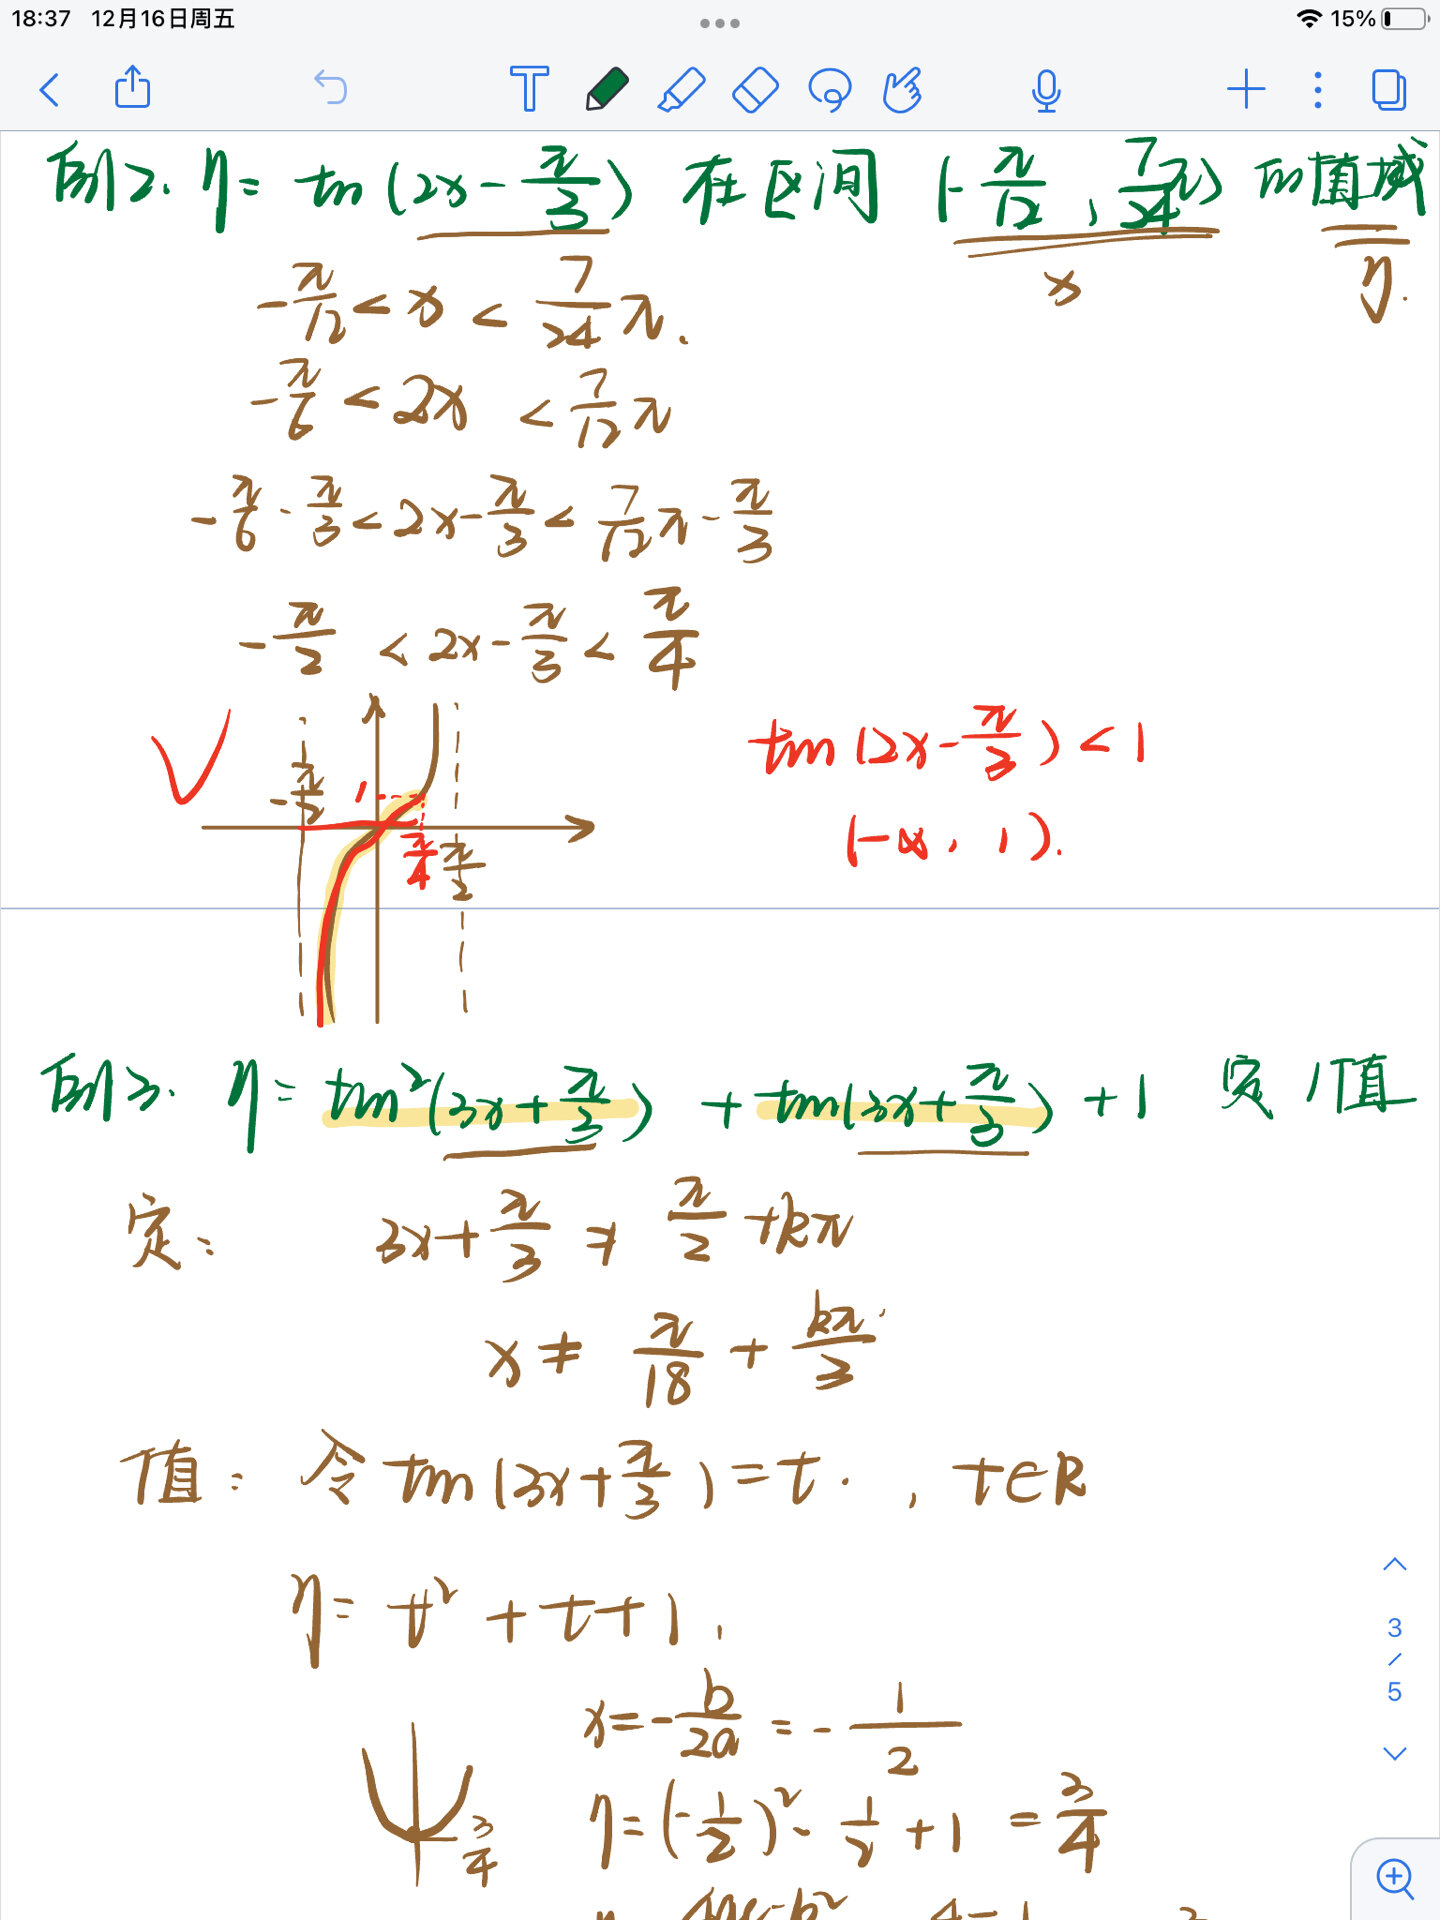 18:37 12月16日周五 15%
例2. y = tan(2x - π/3) 在区间 (-π/12, 7/24π) 的值域
x y.
-π/12 < x < 7/24 π.
-π/6 < 2x < 7/12 π
-π/6 - π/3 < 2x - π/3 < 7/12 π - π/3
-π/2 < 2x - π/3 < π/4
tan(2x - π/3) < 1
-π/2 1 π/4 π/2
(-∞, 1).
例3. y = tan²(3x + π/3) + tan(3x + π/3) + 1 定/值
定: 3x + π/3 ≠ π/2 + kπ
x ≠ π/18 + kπ/3
值: 令 tan(3x + π/3) = t. , t∈R
y = t² + t + 1.
x = -b/2a = -1/2
y = (-1/2)² - 1/2 + 1 = 3/4
3/4
3/5